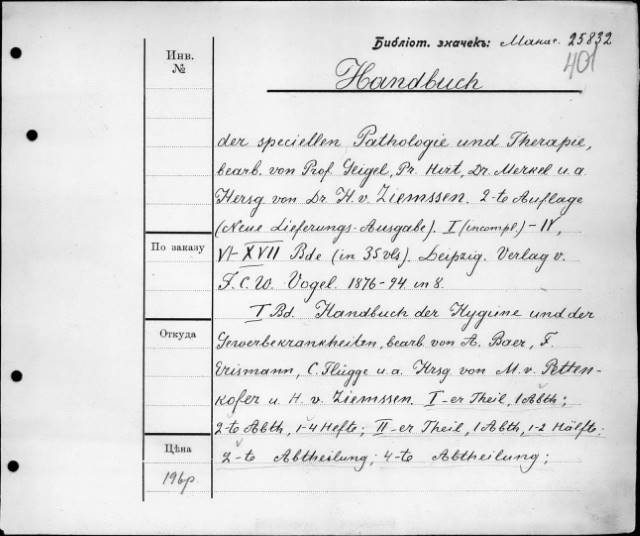 Библіот. значекъ: Макат. 25832
401
Инв. №
Handbuch
der speciellen Pathologie und Therapie,
bearb. von Prof. Geigel, Pr. Hirt, Dr. Merkel u. a.
Hersg von Dr H. v. Ziemssen. 2-te Auflage
(Neue Lieferungs-Ausgabe). I (incompl.) - IV,
По заказу
VI-XVII Bde (in 35 vls). Leipzig. Verlag v.
F. C. W. Vogel. 1876-94 in 8.
I Bd. Handbuch der Hygiine und der
Откуда
Gewerbekrankheiten, bearb. von A. Baer, F.
Erismann, C. Flügge u. a. Hrsg. von M. v. Petten-
kofer u. H. v. Ziemssen. I-er Theil, 1 Abth;
2-te Abth, 1-4 Hefte; II-er Theil, 1 Abth, 1-2 Hälfte.
Цѣна
2-te Abtheilung; 4-te Abtheilung;
196 р.